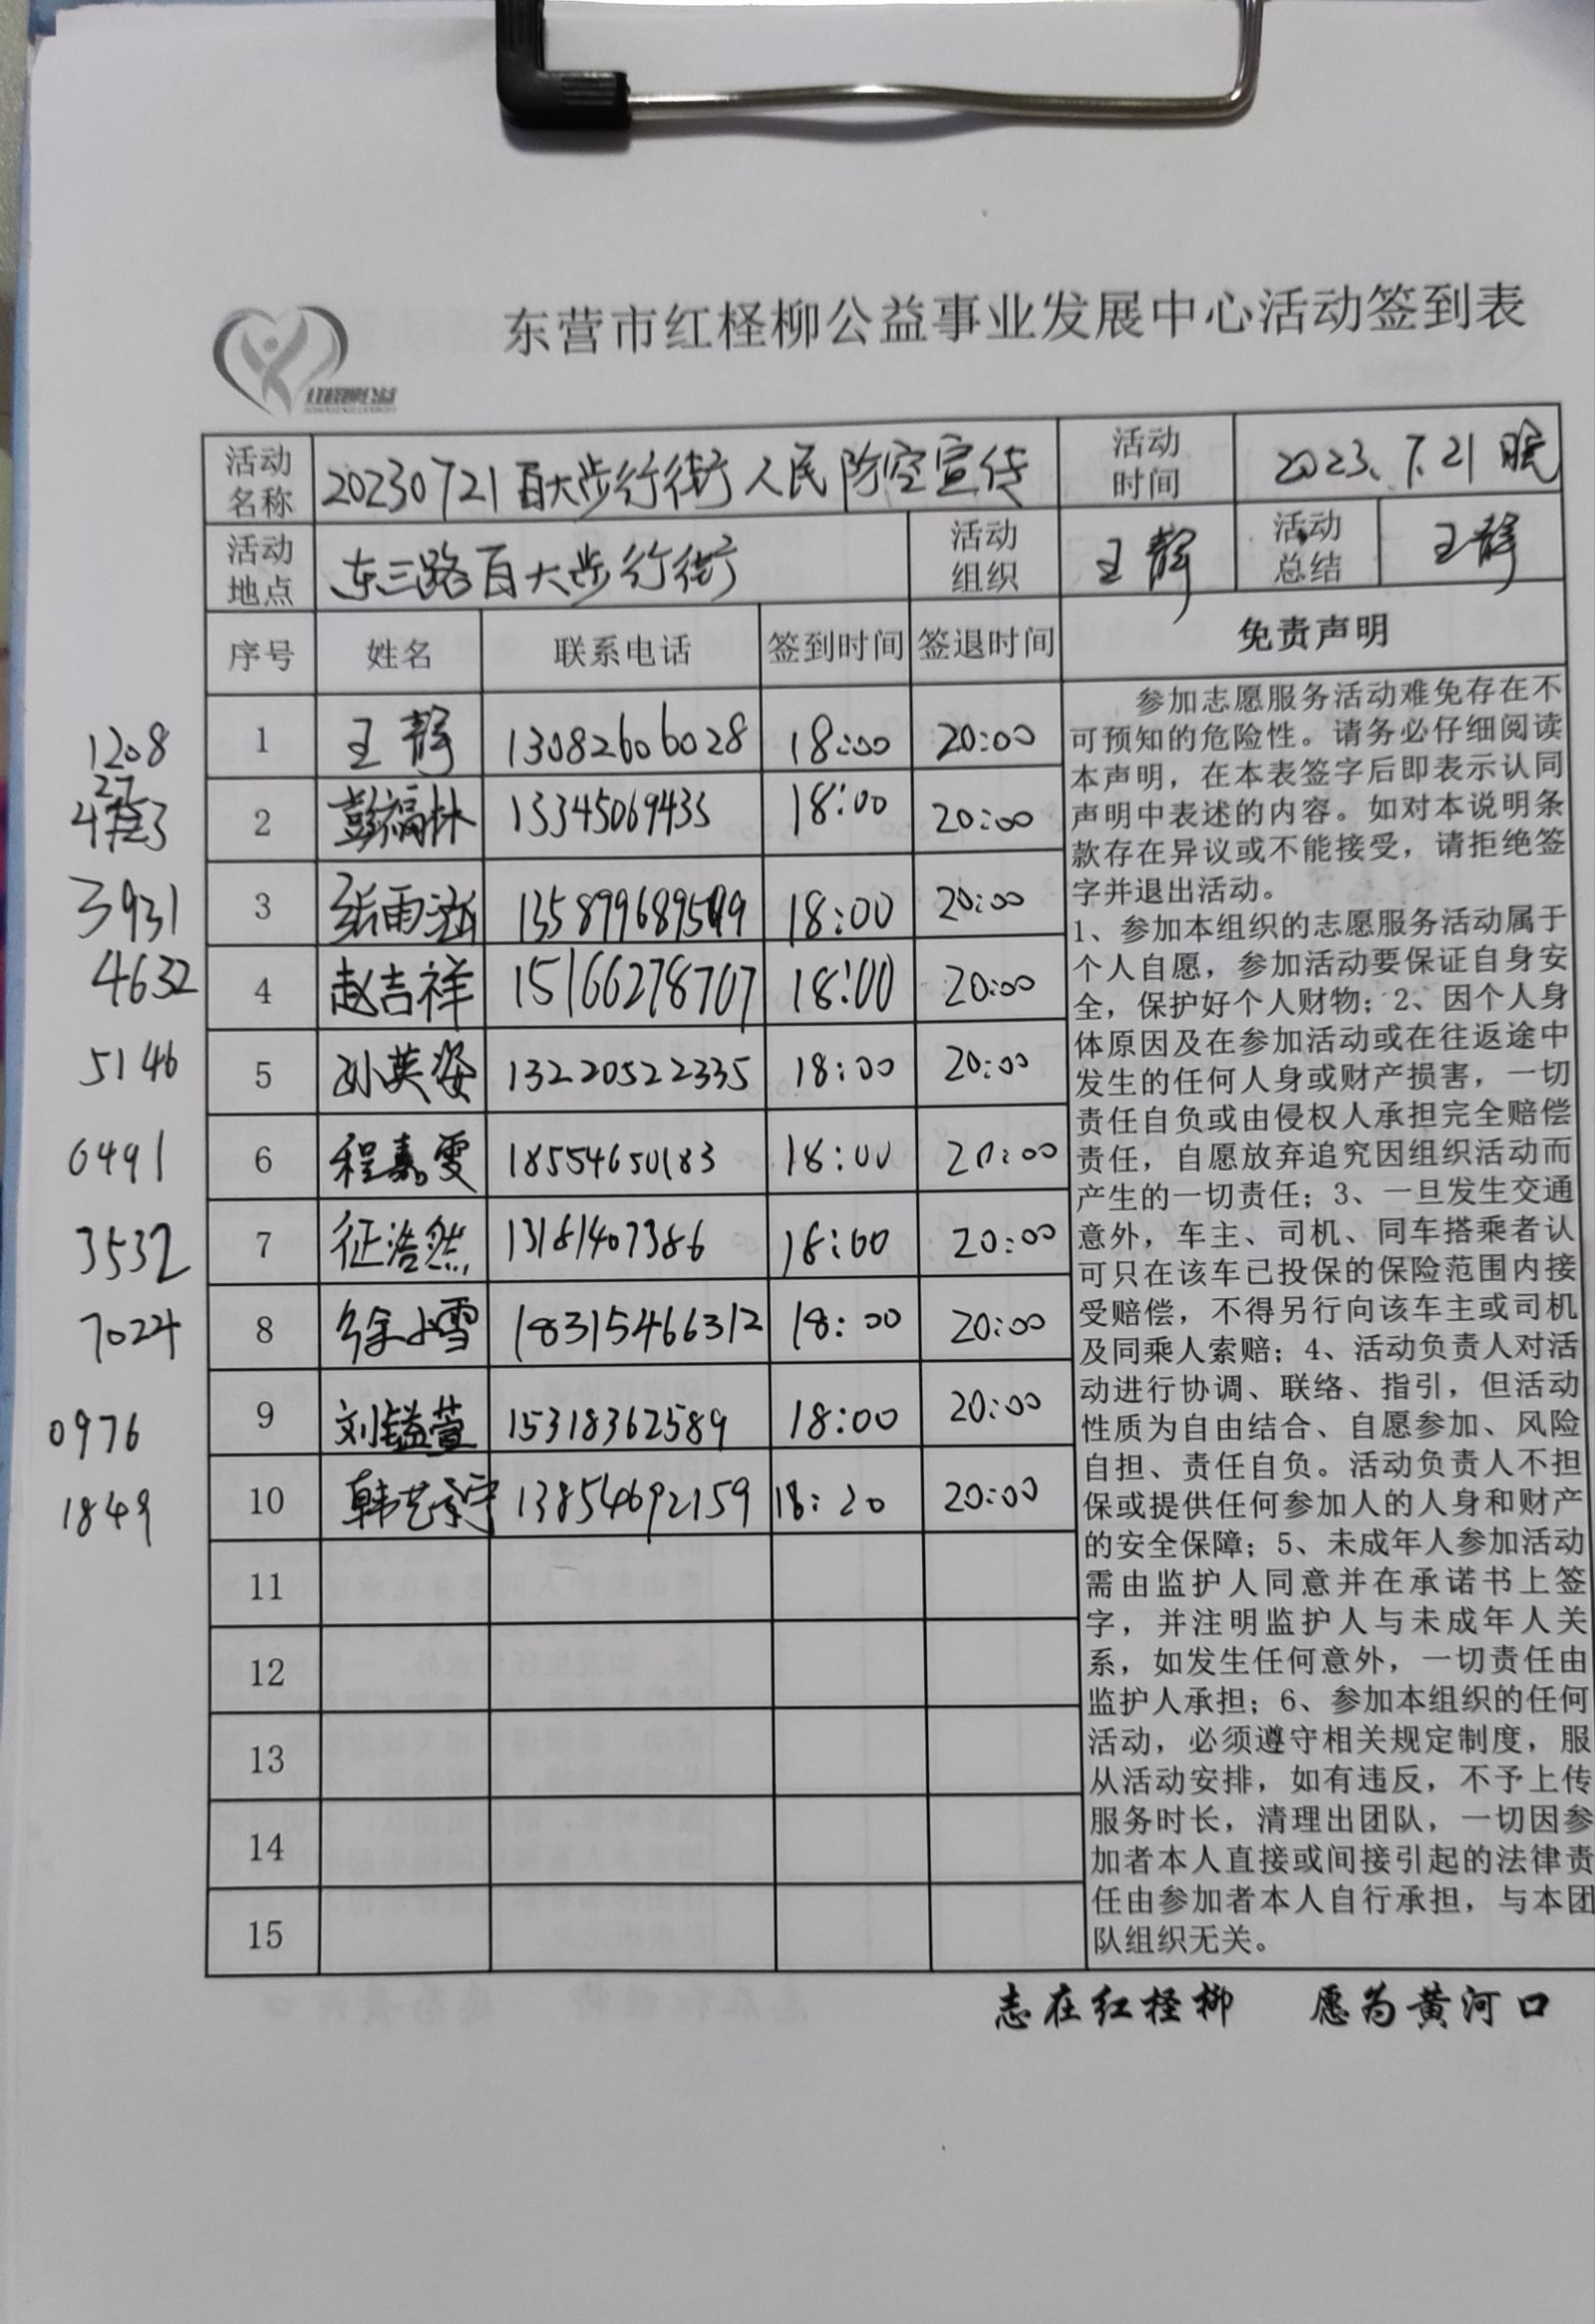 东营市红柽柳公益事业发展中心活动签到表
活动名称 20230721百大步行街人民防空宣传 活动时间 2023.7.21 晚
活动地点 东三路百大步行街 活动组织 王静 活动总结 王静
序号 姓名 联系电话 签到时间 签退时间 免责声明
1208 1 王静 13082606028 18:00 20:00
27
2 彭福林 15345069435 18:00 20:00
3931 3 张雨涵 18:00 20:00
4632 4 赵吉祥 15166278707 18:00 20:00
5146 5 孙英姿 13220522335 18:00 20:00
0491 6 程嘉雯 18554650183 18:00 20:00
3532 7 征浩然 13181407386 18:00 20:00
7024 8 徐小雪 18315466312 18:00 20:00
0976 9 刘镒萱 15318362589 18:00 20:00
1849 10 韩艺 13854692159 18:20 20:00
11
12
13
14
15
参加志愿服务活动难免存在不
可预知的危险性。请务必仔细阅读
本声明，在本表签字后即表示认同
声明中表述的内容。如对本说明条
款存在异议或不能接受，请拒绝签
字并退出活动。
1、参加本组织的志愿服务活动属于
个人自愿，参加活动要保证自身安
全，保护好个人财物；2、因个人身
体原因及在参加活动或在往返途中
发生的任何人身或财产损害，一切
责任自负或由侵权人承担完全赔偿
责任，自愿放弃追究因组织活动而
产生的一切责任；3、一旦发生交通
意外，车主、司机、同车搭乘者认
可只在该车已投保的保险范围内接
受赔偿，不得另行向该车主或司机
及同乘人索赔；4、活动负责人对活
动进行协调、联络、指引，但活动
性质为自由结合、自愿参加、风险
自担、责任自负。活动负责人不担
保或提供任何参加人的人身和财产
的安全保障；5、未成年人参加活动
需由监护人同意并在承诺书上签
字，并注明监护人与未成年人关
系，如发生任何意外，一切责任由
监护人承担；6、参加本组织的任何
活动，必须遵守相关规定制度，服
从活动安排，如有违反，不予上传
服务时长，清理出团队，一切因参
加者本人直接或间接引起的法律责
任由参加者本人自行承担，与本团
队组织无关。
志在红柽柳 愿为黄河口